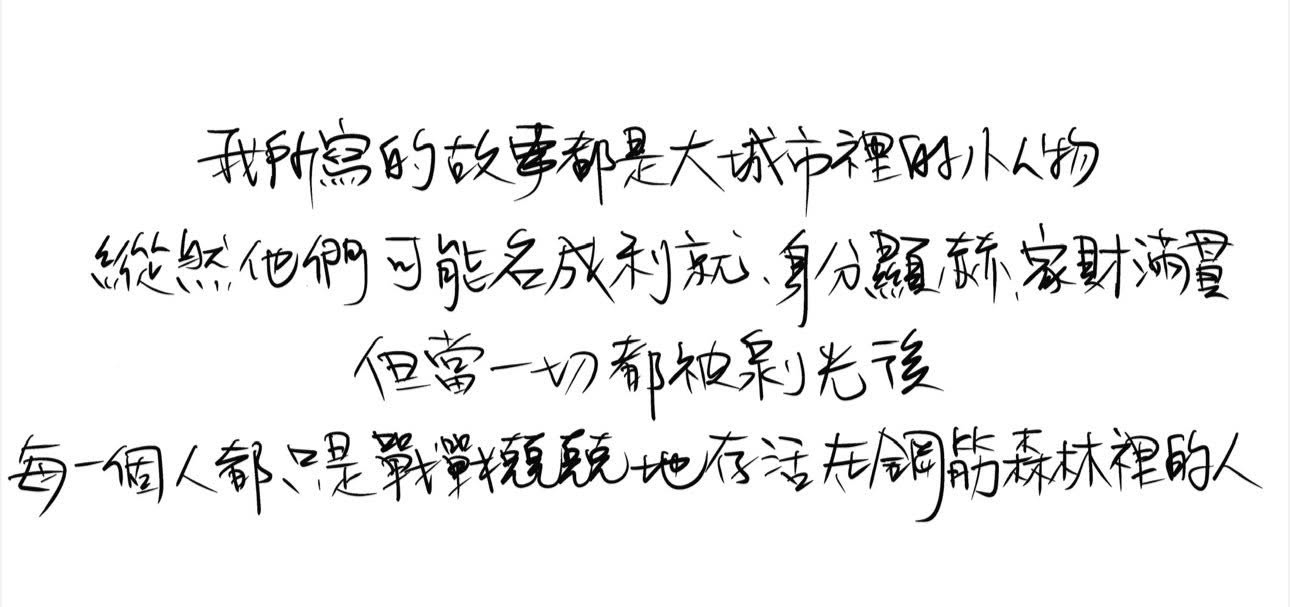 我所寫的故事都是大城市裡的小人物
縱然他們可能名成利就、身分顯赫、家財滿貫
但當一切都被剝光後
每一個人都只是戰戰兢兢地存活在鋼筋森林裡的人